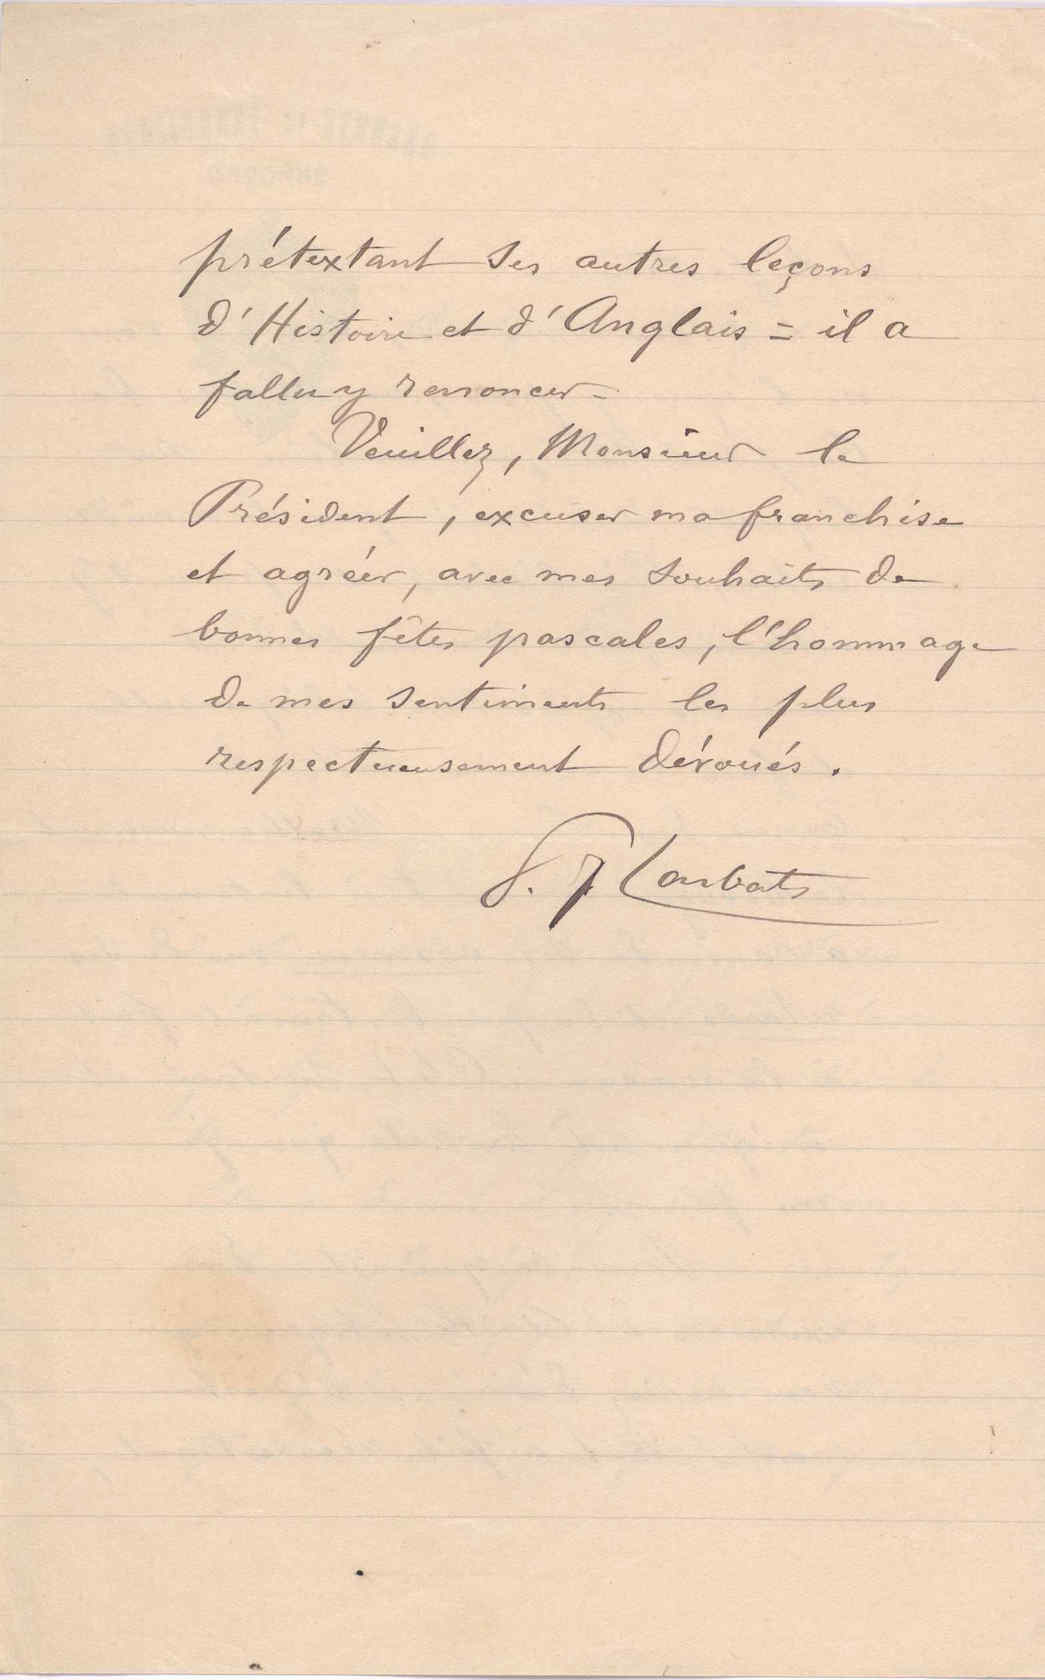 prétextant ses autres leçons
d'Histoire et d'Anglais = il a
fallu y renoncer -
Veuillez, Monsieur le
Président, excuser ma franchise
et agréer, avec mes souhaits de
bonnes fêtes pascales, l'hommage
de mes sentiments les plus
respectueusement dévoués.